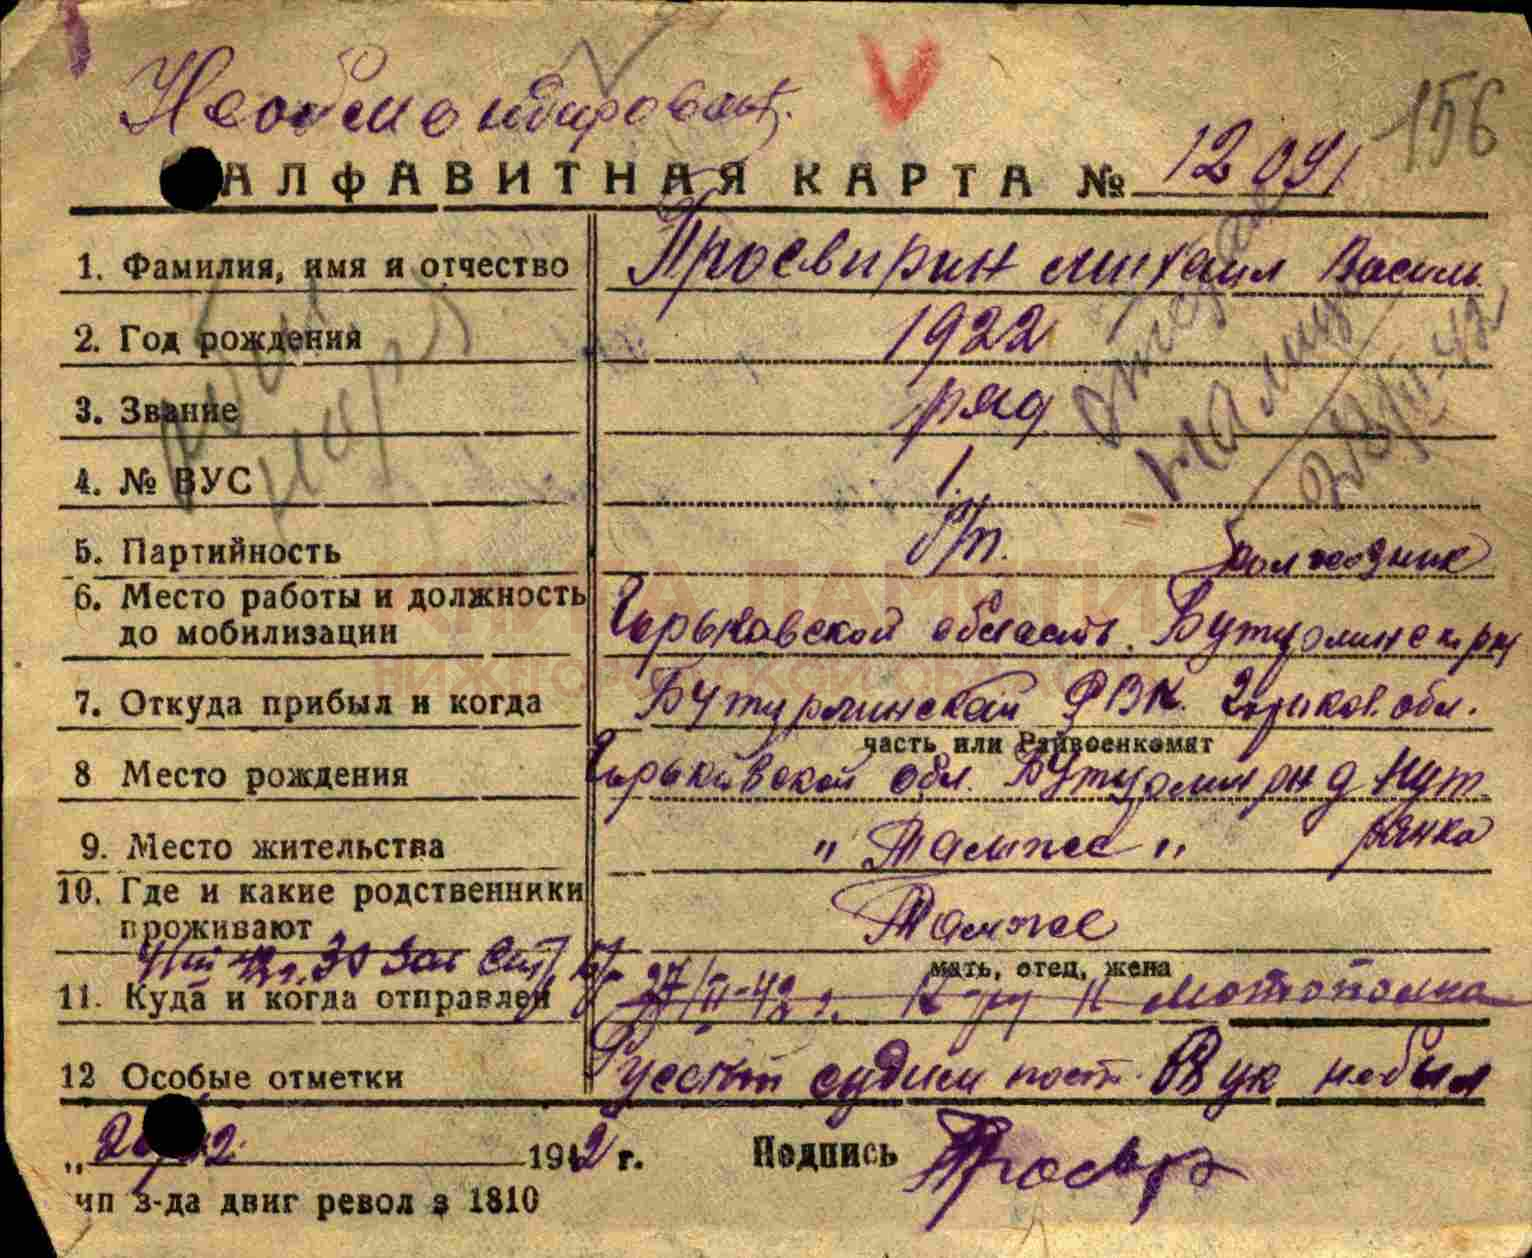 156
АЛФАВИТНАЯ КАРТА № 12091
1. Фамилия, имя и отчество Просвирин Михаил Василь.
2. Год рождения 1922
3. Звание ряд
4. № ВУС 1.
5. Партийность б/п. колхозник
6. Место работы и должность
до мобилизации Горьковской область. Бутурлинск рн
7. Откуда прибыл и когда Бутурлинский РВК. Горьков. обл.
часть или Райвоенкомат
8 Место рождения Горьковской обл. Бутурлин рн д Кут.
рянка
9. Место жительства " Тамже "
10. Где и какие родственники
проживают Тамже
мать, отец, жена
30 зап
11. Куда и когда отправлен 27/II-42 г. мотополка
12 Особые отметки Русский судим небыл
" 1942 г. Подпись Просвир
тип з-да двиг револ з 1810
КНИГА ПАМЯТИ
НИЖЕГОРОДСКОЙ ОБЛАСТИ